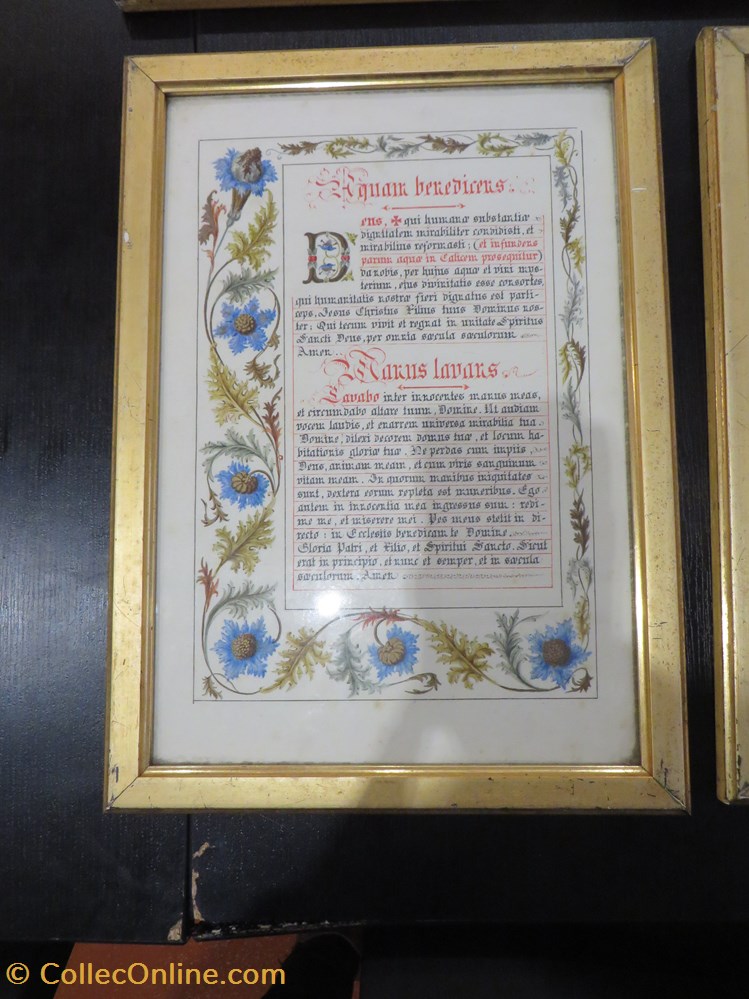 Aquam benedicens.
Deus, ✠ qui humanæ substantiæ
dignitatem mirabiliter condidisti, et
mirabilius reformasti: (et infundens
parum aquæ in Calicem prosequitur)
da nobis, per hujus aquæ et vini mys-
terium, ejus divinitatis esse consortes,
qui humanitatis nostræ fieri dignatus est parti-
ceps, Jesus Christus Filius tuus Dominus nos-
ter: Qui tecum vivit et regnat in unitate Spiritus
Sancti Deus, per omnia sæcula sæculorum
Amen..
Manus lavans
Lavabo inter innocentes manus meas,
et circumdabo altare tuum, Domine. Ut audiam
vocem laudis, et enarrem universa mirabilia tua
Domine, dilexi decorem domus tuæ, et locum ha-
bitationis gloriæ tuæ. Ne perdas cum impiis,
Deus, animam meam, et cum viris sanguinum
vitam meam. In quorum manibus iniquitates
sunt, dextera eorum repleta est muneribus. Ego
autem in innocentia mea ingressus sum: redi-
me me, et miserere mei. Pes meus stetit in di-
recto: in Ecclesiis benedicam te Domine.
Gloria Patri, et Filio, et Spiritui Sancto. Sicut
erat in principio, et nunc et semper, et in sæcula
sæculorum. Amen
© CollecOnline.com